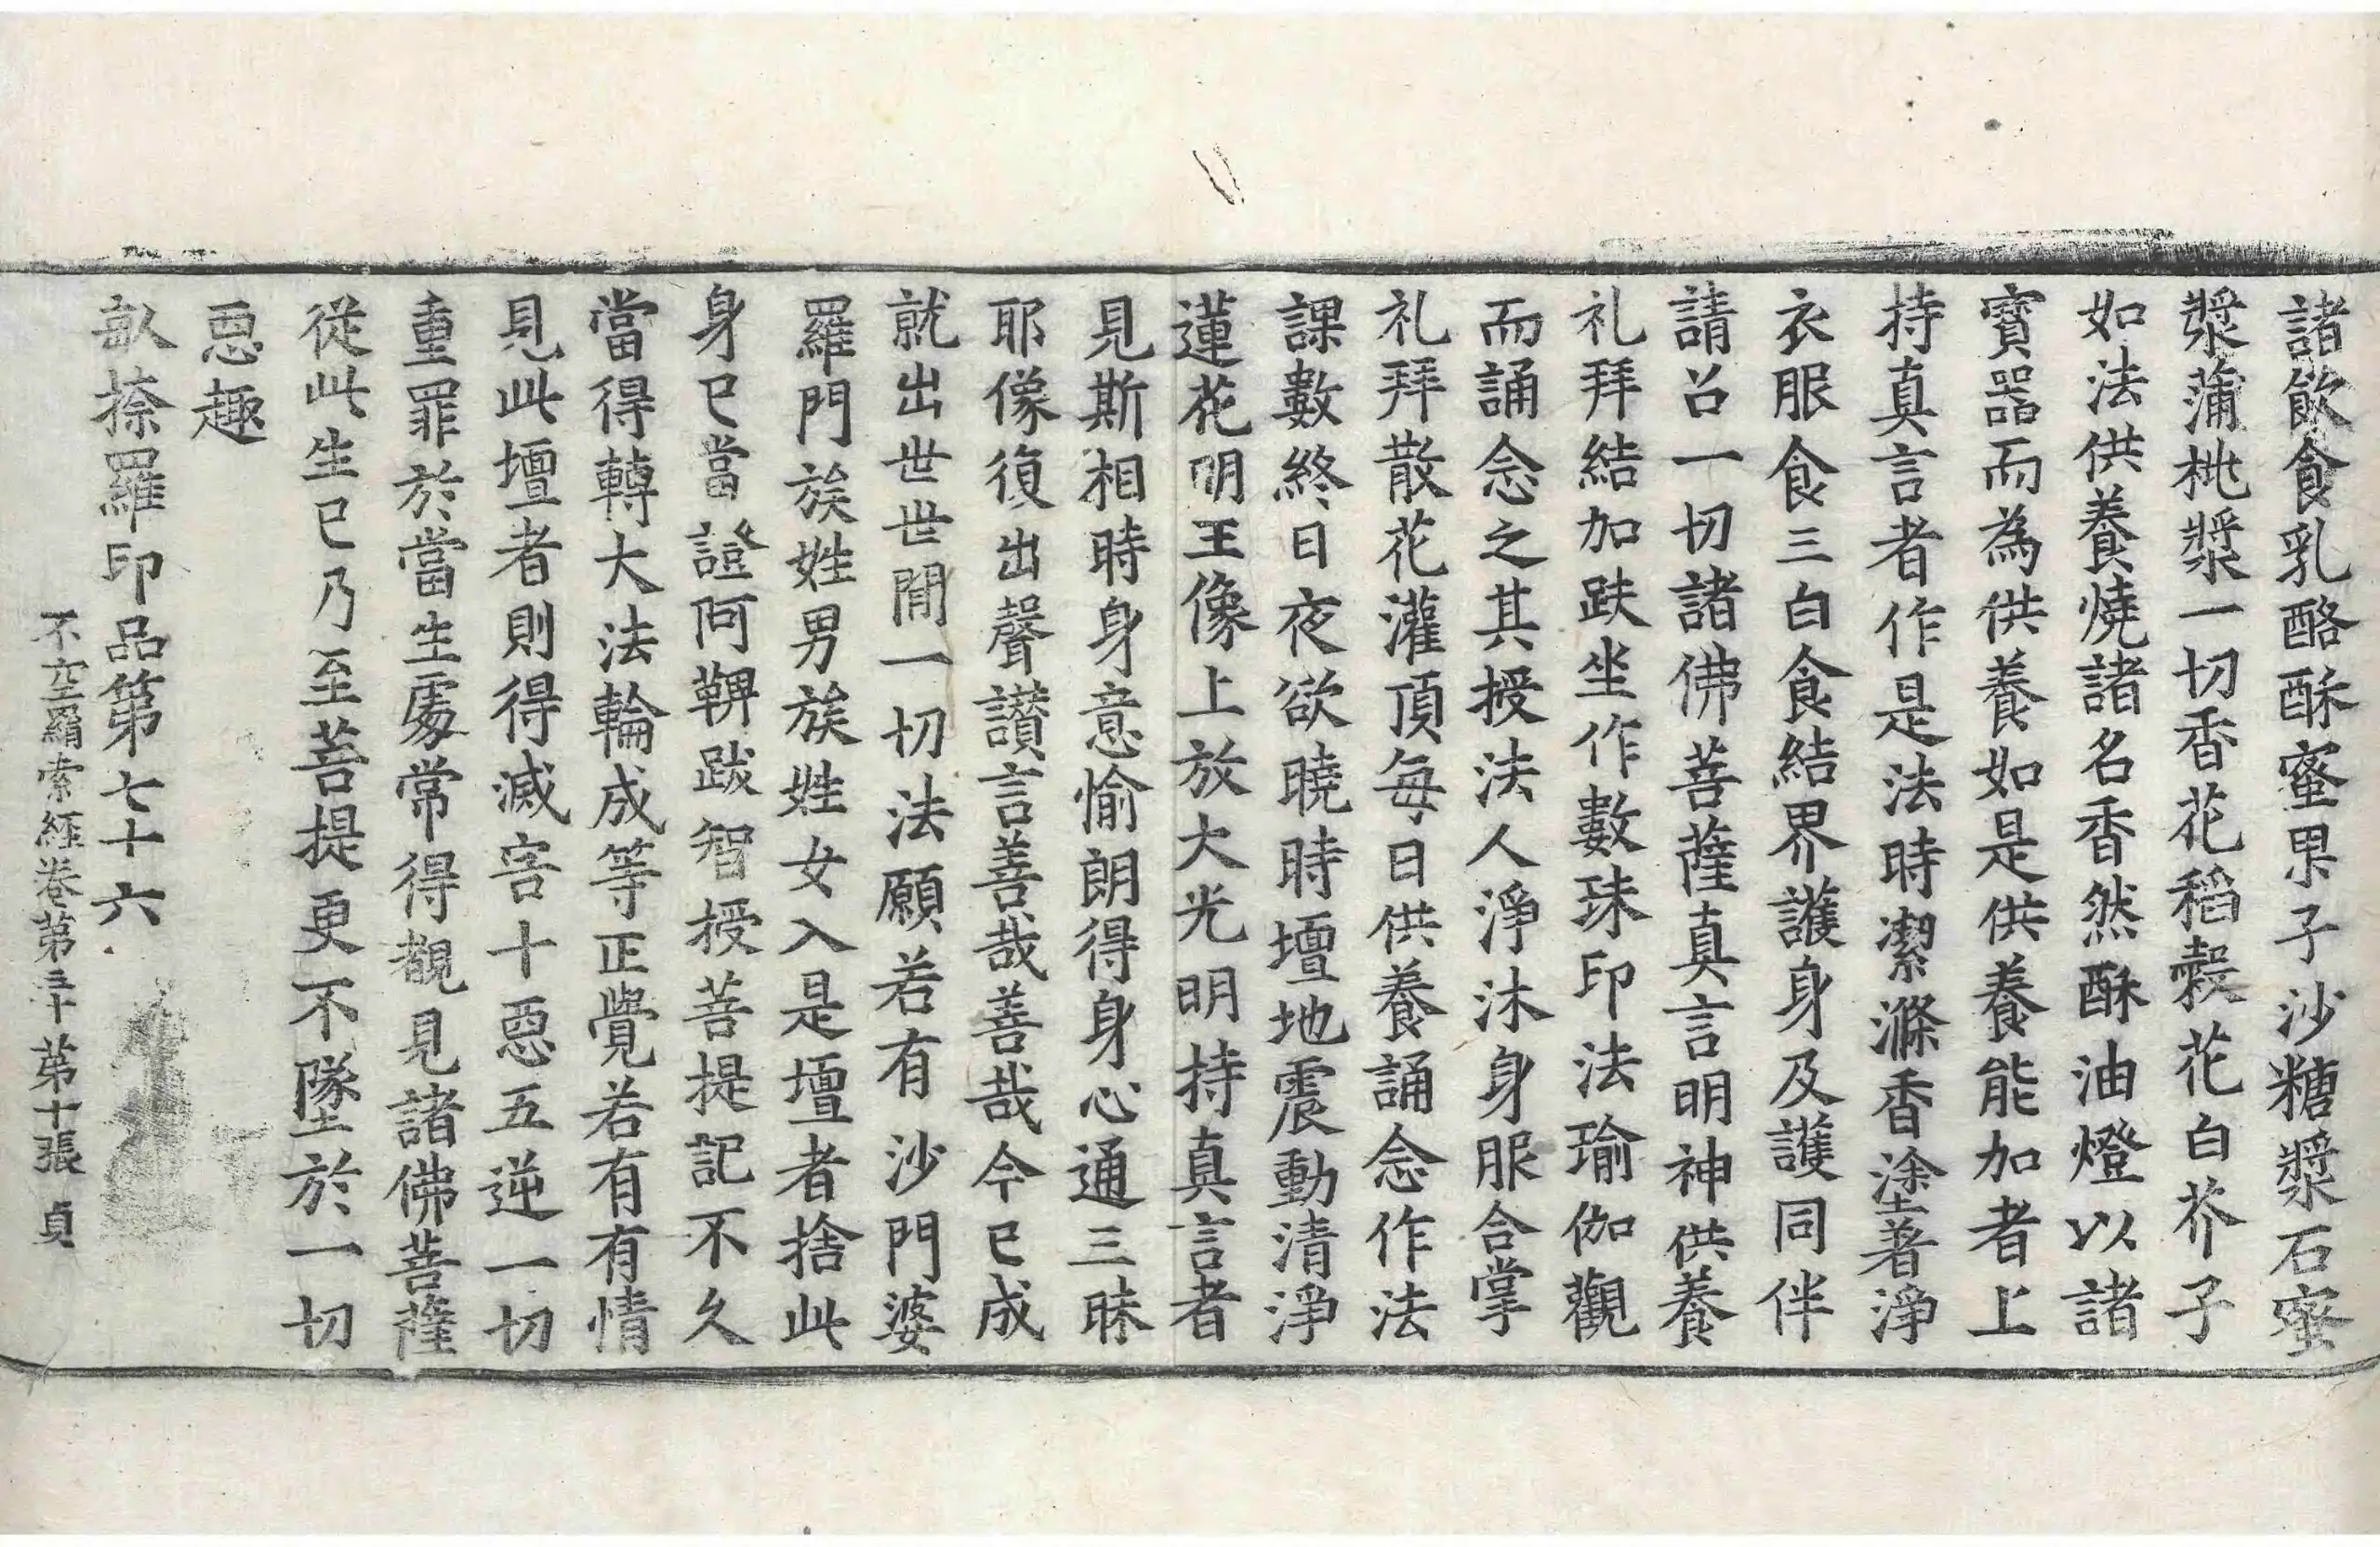 諸飲食乳酪酥蜜果子沙糖漿石蜜
漿蒲桃漿一切香花稻穀花白芥子
如法供養燒諸名香然酥油燈以諸
寶器而為供養如是供養能加者上
持真言者作是法時潔滌香塗著淨
衣服食三白食結界護身及護同伴
請召一切諸佛菩薩真言明神供養
礼拜結加趺坐作數珠印法瑜伽觀
而誦念之其授法人淨沐身服合掌
礼拜散花灌頂每日供養誦念作法
課數終日夜欲曉時壇地震動清淨
蓮花明王像上放大光明持真言者
見斯相時身意愉朗得身心通三昧
耶像復出聲讃言善哉善哉今已成
就出世世間一切法願若有沙門婆
羅門族姓男族姓女入是壇者捨此
身已當證阿鞞跋智授菩提記不久
當得轉大法輪成等正覺若有有情
見此壇者則得滅害十惡五逆一切
重罪於當生處常得覩見諸佛菩薩
從此生已乃至菩提更不墜於一切
惡趣
㪉捺羅印品第七十六
不空羂索經卷第三十 第十張 貞